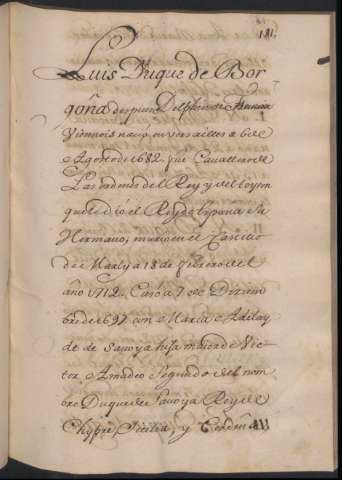 181.
Luis Duque de Bor
goña despues Delphin de
Viennois nacio en versailles a 6 de
Agosto de 1682. fue Cavallero de
Las ordenes del Rey y del toyson
que le dió el Rey de españa su
Hermano, murio en el Castillo
de Marly a 18 de febrero del
año 1712. Casó a 7 de Diziem
bre de 1697 con Maria Adelay
de de Savoya hija maior de Vic
tor Amadeo Segundo del nom
bre Duque de Savoya Rey de
Chypre, Sicilia, y